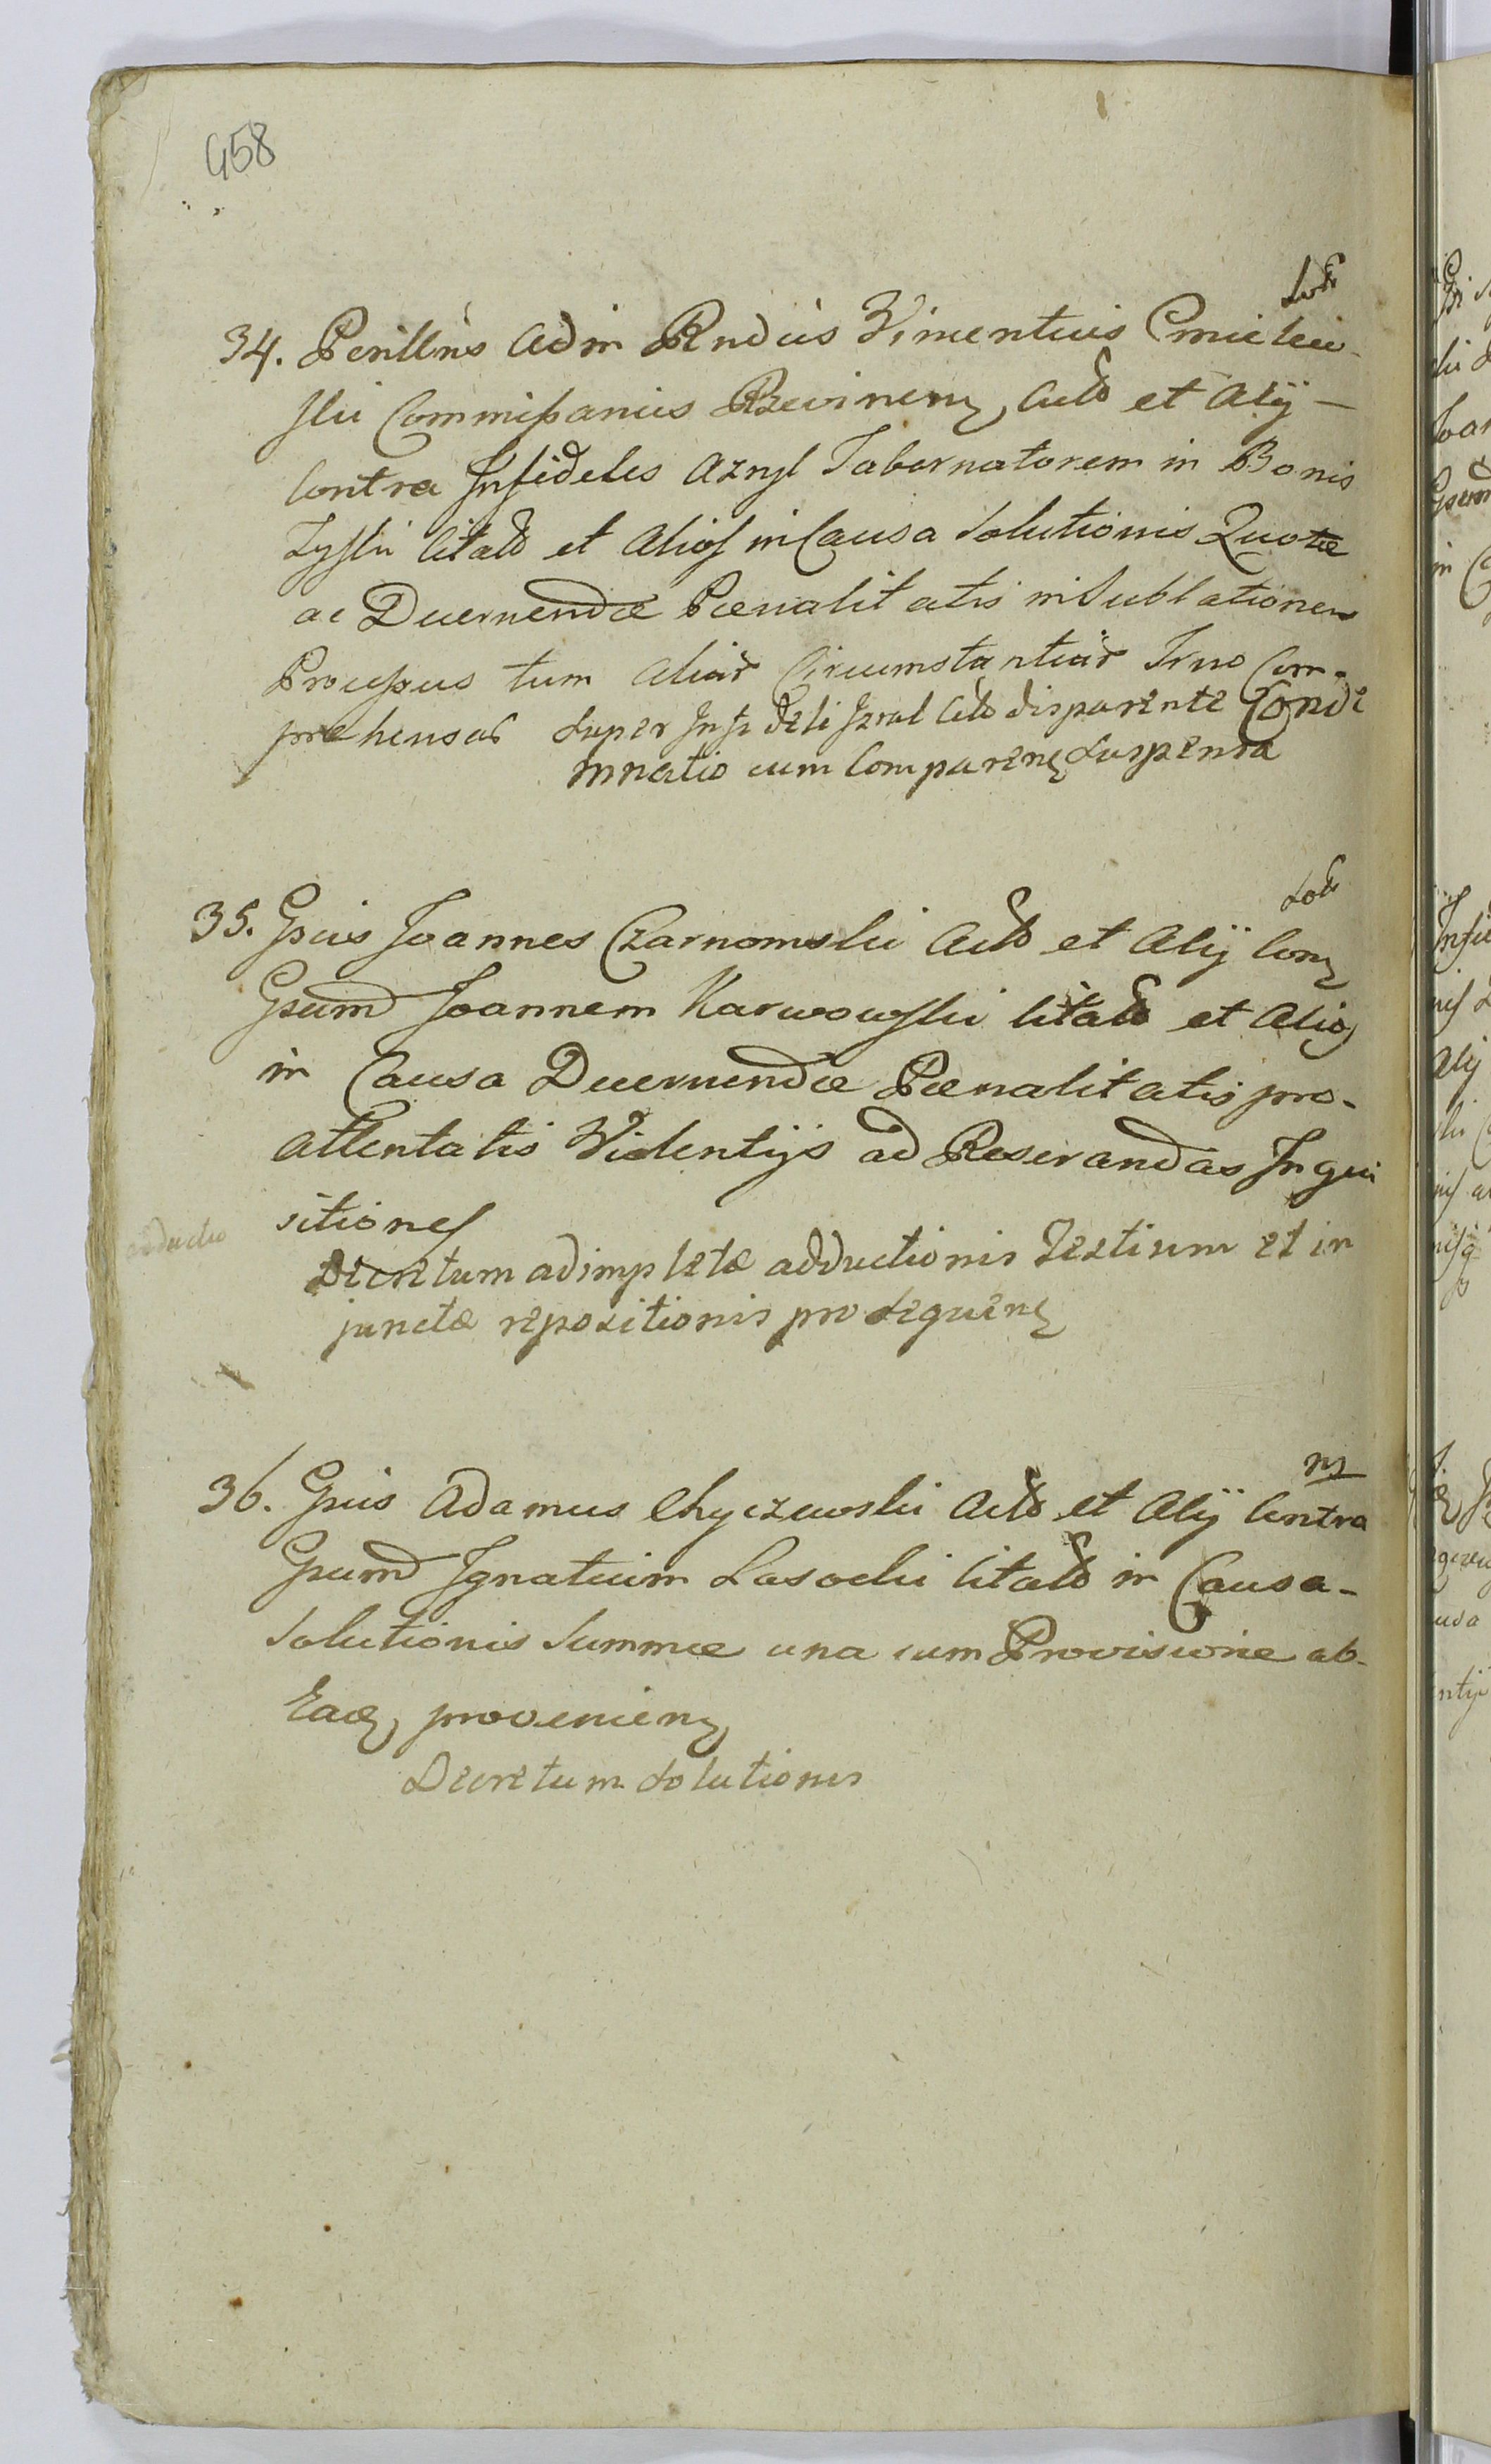 458
34. Perillris Adm Rndus Vincentius Cmielew-
ski Commissarius Ravinen, Actor et Alij —
Contra Infideles Tabernatorem in Bonis
Citato et Alios in Causa Solutionis Quotæ
ac Decernendæ Pœnalitatis in Sublationem
Processus tum Aliar Circumstantiar Trno Com-
prehensar Super Infideli Izrael Cito disparente Conde
mnatio cum Comparen Suspensa
35. Gsus Joannes Czarnomski Actor et Alij Con
Gsum Joannem Karwowski Citato et Alios
in Causa Decernendæ Pœnalitatis pro-
Attentatis Violentijs ad Reserandas Inqui
sitiones
Decretum adimpletæ adductionis Testium et in
junctæ repositionis pro Sequen
36. Gsus Adamus Chyczewski Actor et Alij Contra
Gsum Ignatium Lasocki Citato in Causa-
Solutionis Summæ una cum Provisione ab-
Eadem provenien
Decretum Solutionis